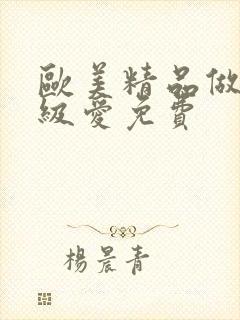 歐美精品做
級愛免費
楊晨青